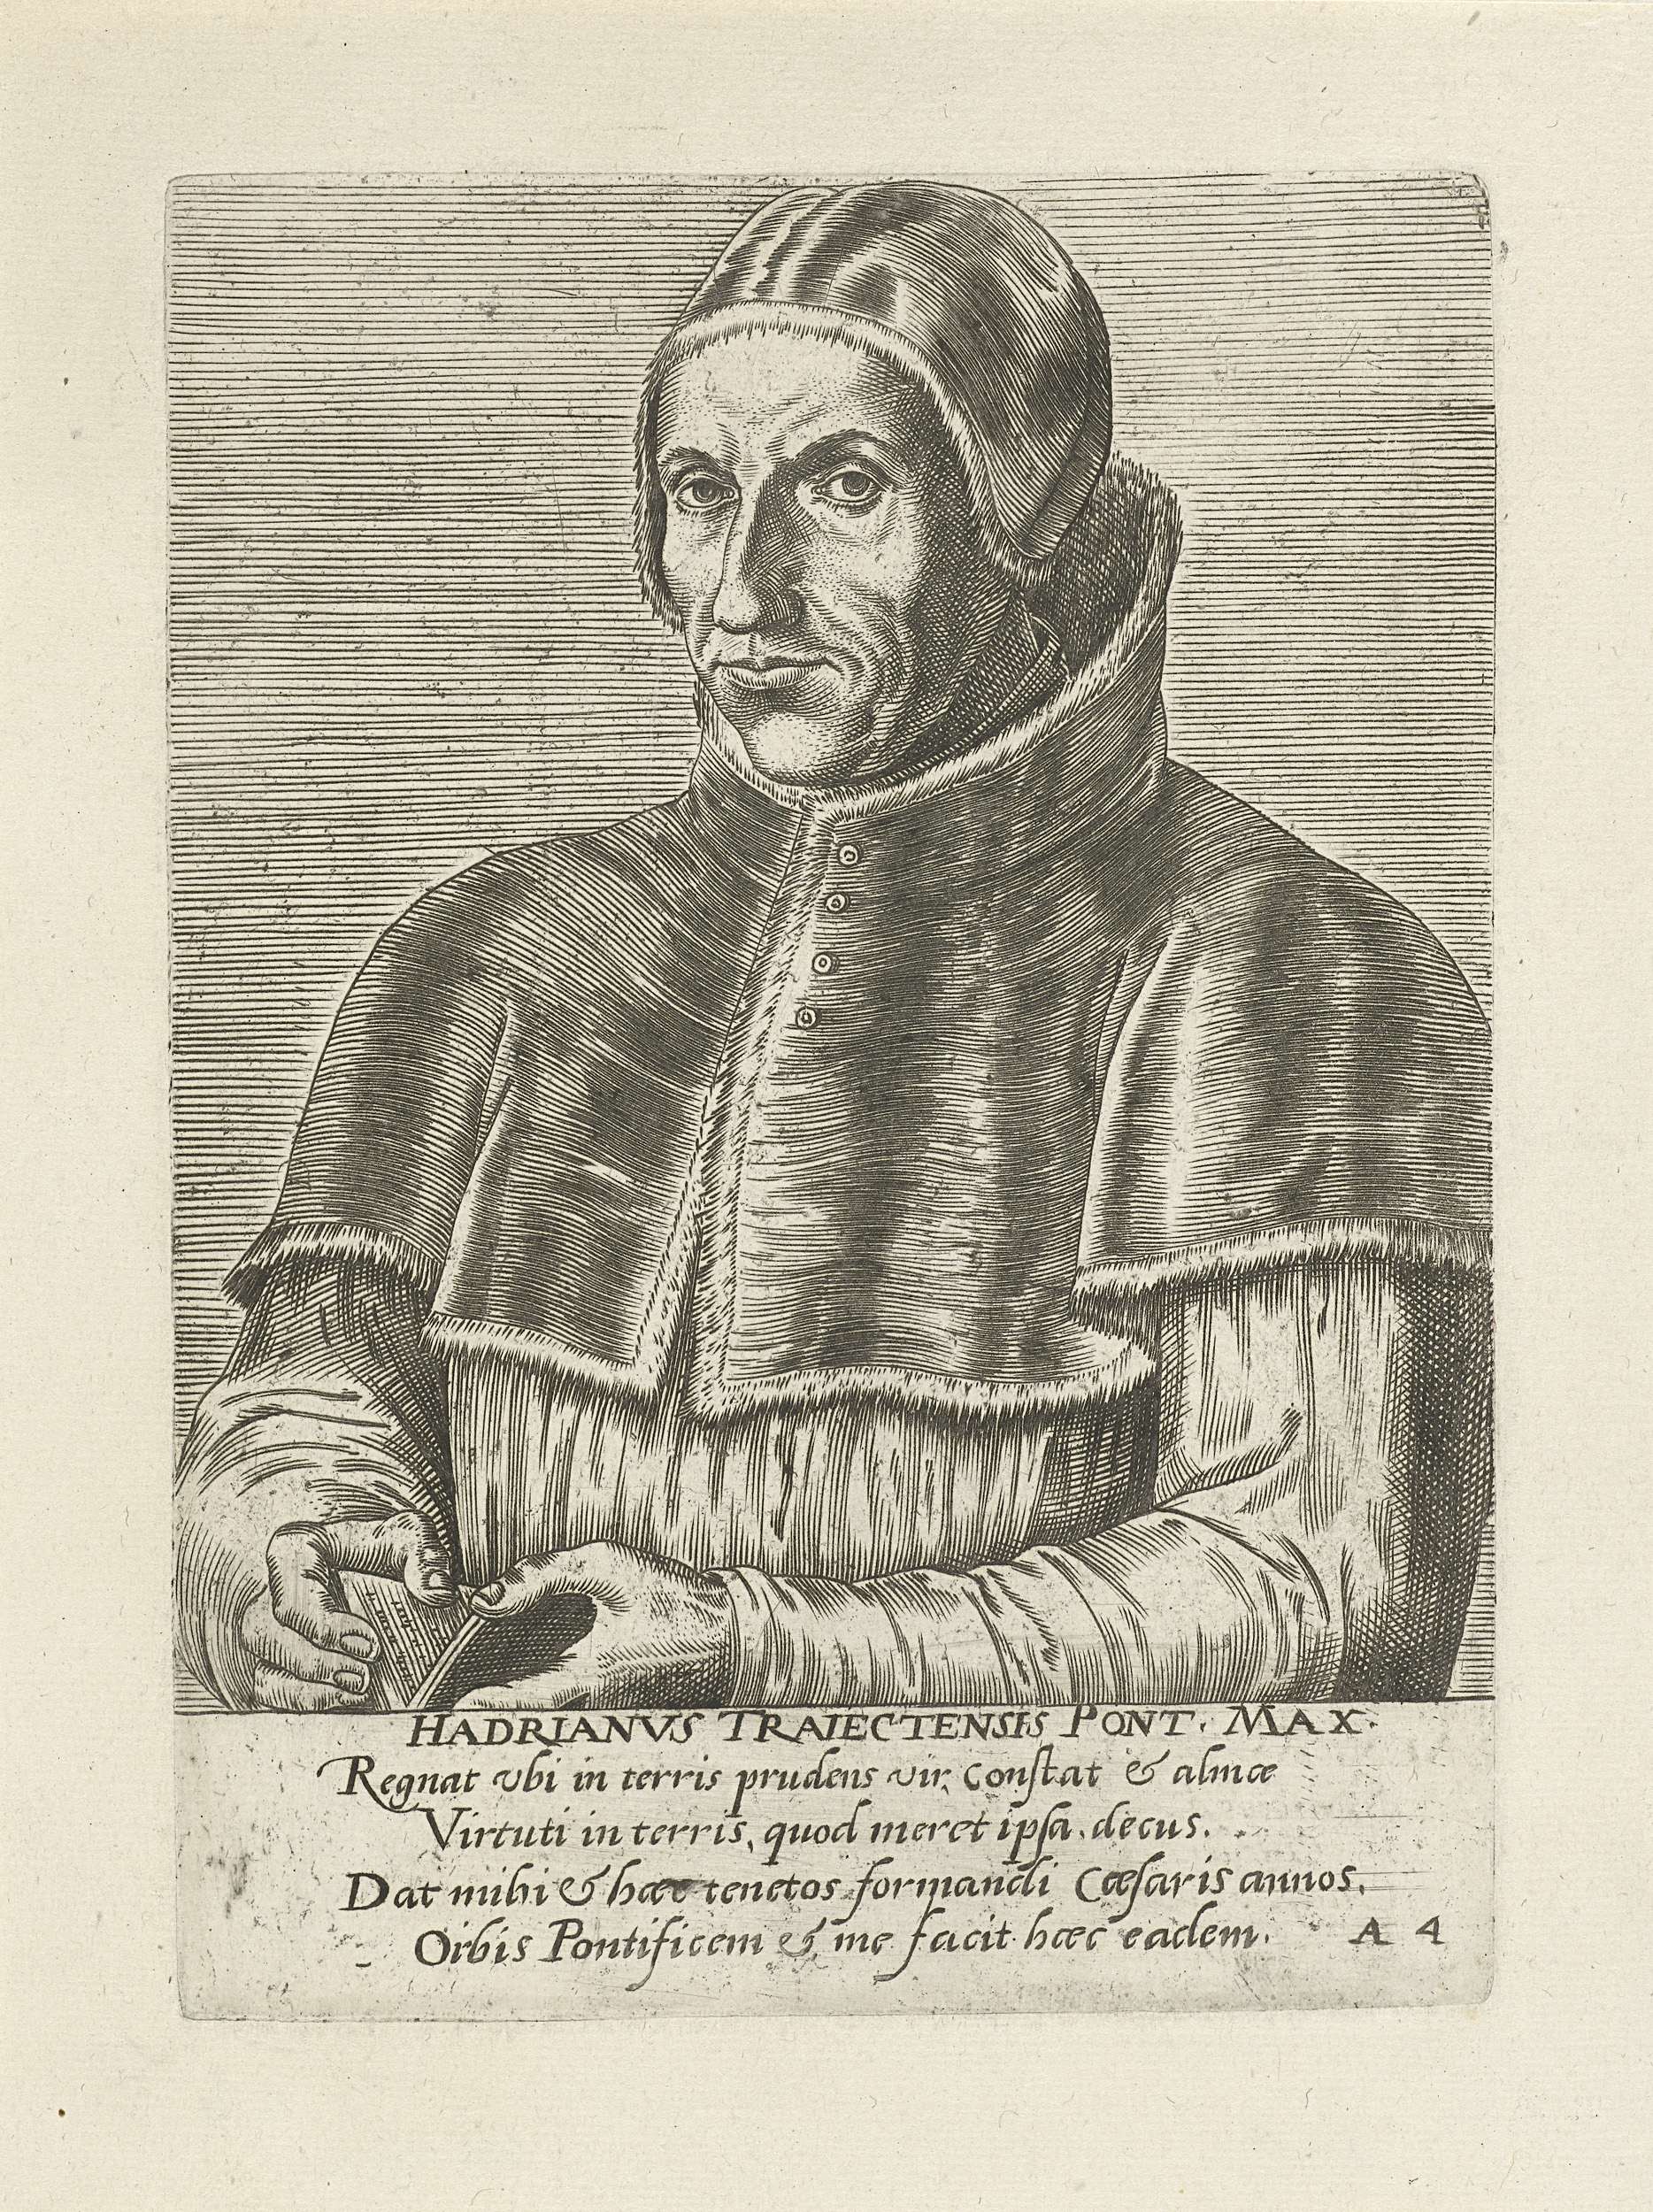 HADRIANVS TRAIECTENSIS PONT. MAX.
Regnat vbi in terris prudens vir, constat & almæ
Virtuti in terris, quod meret ipsa, decus.
Dat mihi & hæc tenetos formandi Cæsaris annos,
Orbis Pontificem & me facit hæc eadem.
A 4